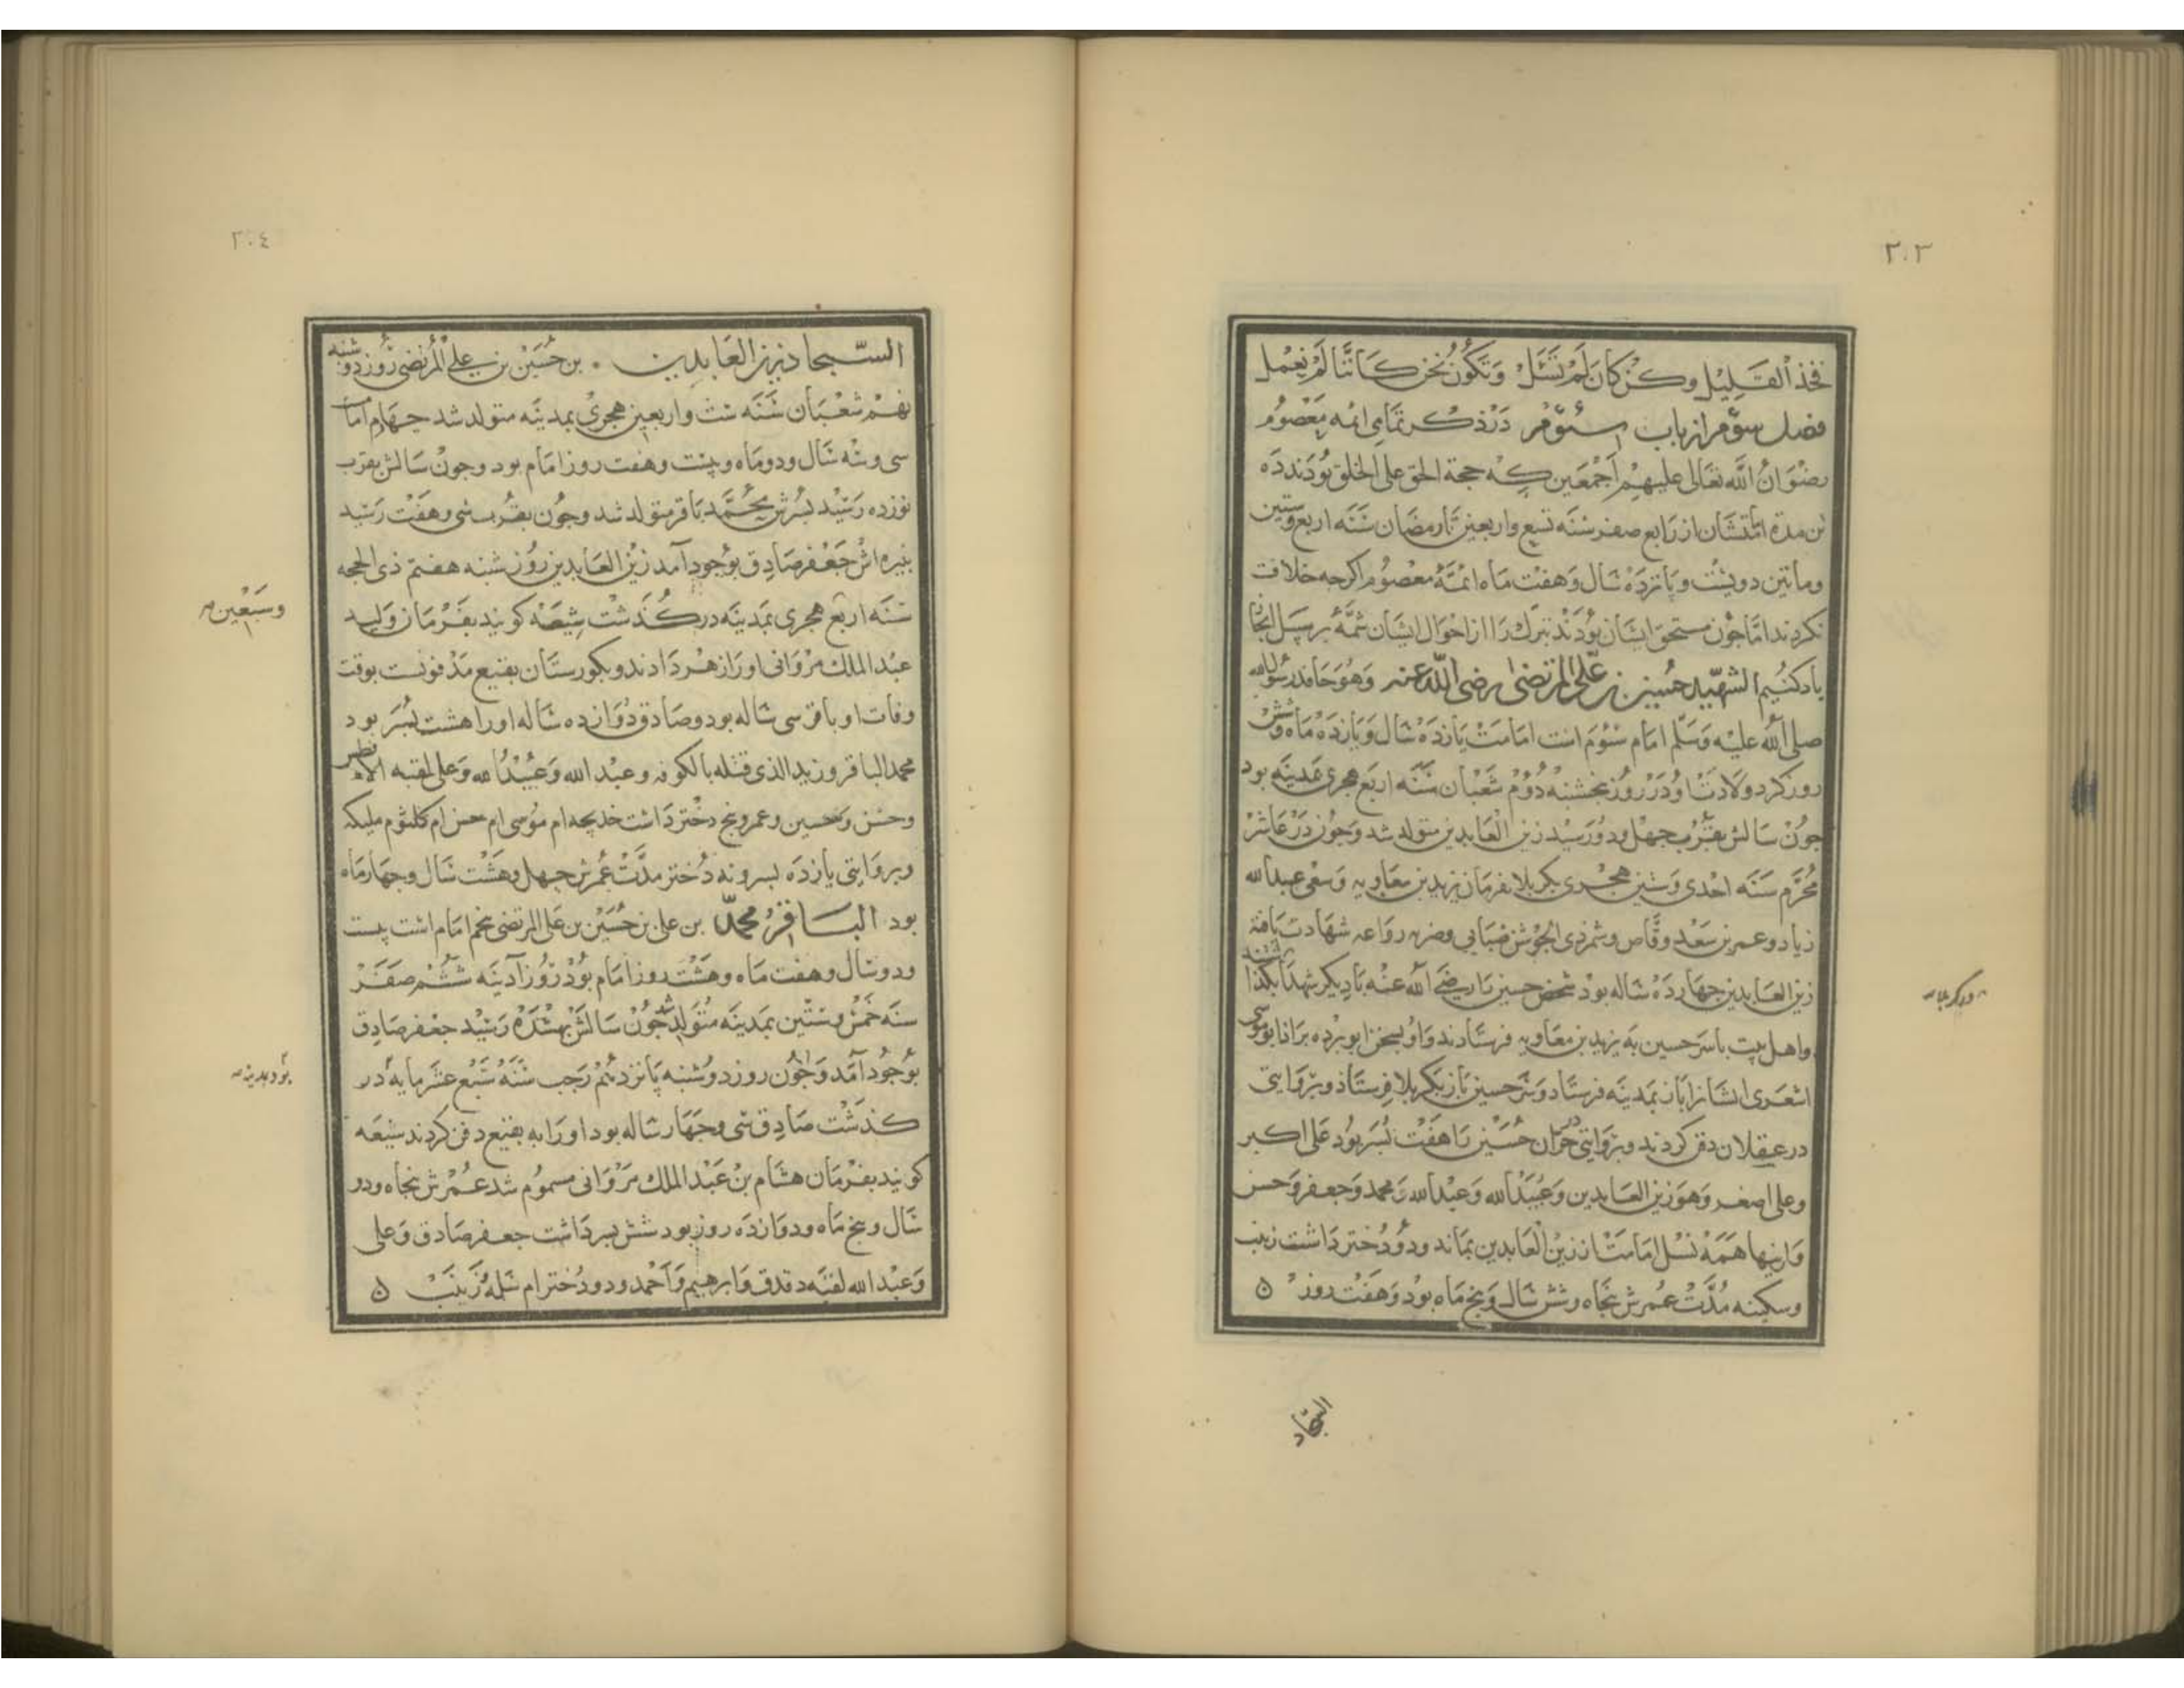 ٢٠٣
فخذ القليل وكن كان لم تسئل وتكون نحن كاننا لم نعمل
فصل سوم از باب سئوم در ذكر تمامى ائمه معصوم
رضوان الله تعالى عليهم اجمعين كه حجة الحق على الخلق بودند ده
تن مدة امامتشان از رابع صفر سنه تسع واربعين تا رمضان سنه اربع وستين
وماتين دويست و پانزده سال و هفت ماه ائمّهٔ معصوم اكرجه خلافت
نكردند امّا جون مستحق ايشان بودند تبرك را از احوال ايشان شمّهٔ بر سبيل ايجاز
ياد كنيم الشهيد حسين بن على المرتضى رضى الله عنه وهو حافد رسول الله
صلى الله عليه وسلم امام سئوم است امامتش يازده سال و يازده ماه و شش
روز كرد ولادت او در روز پنجشنبه دوم شعبان سنه اربع هجرى بمدينه بود
جون سالش بقرب جهل و دو رسيد زين العابدين متولد شد و جون در عاشر
محرّم سنه احدى وستين هجرى بكربلا بفرمان يزيد بن معاويه و سعى عبد الله
زياد و عمر بن سعد وقّاص و شمر ذى الجوشن ضبابى شهادت يافته
زين العابدين جهارده ساله بود شخص حسين را رضى الله عنه با ديكر شهدا بكذاشتند
واهل بيت با سر حسين به يزيد بن معاويه فرستادند و او بسخن ابو برده بر انا بو موسى
اشعرى ايشانرا باز بمدينه فرستاد و سر حسين باز بكربلا فرستاد و بروايتى
در عسقلان دفن كردند و بروايتى در حرّان حسين را هفت پسر بود على اكبر
وعلى اصغر وهو زين العابدين وعبيد الله وعبد الله و محمد وجعفر وحسن
و ازينها همه نسل امامت از زين العابدين بماند و دو دختر داشت زينب
وسكينه مدّت عمرش پنجاه و شش سال و پنج ماه بود و هفت روز ن
در كربلا
السجاد
٢٠٤
السّجاد زين العابدين بن حسين بن على المرتضى روز دو شنبه
نهم شعبان سنه ست واربعين هجرى بمدينه متولد شد جهارم امام
سى وسه سال و دو ماه و بيست و هفت روز امام بود وجون سالش بقرب
نوزده رسيد پسرش محمّد باقر متولد شد و جون بقرب سى و هفت رسيد
نبيره اش جعفر صادق بوجود آمد زين العابدين روز شنبه هفتم ذى الحجه
سنه اربع هجرى بمدينه در كذشت شيعه كويند بفرمان وليد
عبد الملك مروانى او را زهر دادند و بكورستان بقيع مدفونست بوقت
وفات او باقر سى ساله بود و صادق دوازده ساله او را هشت پسر بود
محمد الباقر وزيد الذى قتله بالكوفه وعبد الله وعبيد الله وعلى لقبه الافطس
وحسن وحسين وعمر و پنج دختر داشت خديجه ام موسى ام حسن ام كلثوم مليكه
وبروايتى يازده پسر و نه دختر مدّت عمرش جهل و هشت سال و جهار ماه
بود الباقر محمّد بن على بن حسين بن على المرتضى پنجم امام است بيست
و دو سال و هفت ماه و هشت روز امام بود روز آدينه ششم صفر
سنه خمس وستّين بمدينه متولد شد جون سالش بهشده رسيد جعفر صادق
بوجود آمد و جون روز دوشنبه پانزدهم رجب سنه سبع عشر مايه در
كذشت صادق سى و جهار ساله بود او را به بقيع دفن كردند شيعه
كويند بفرمان هشام بن عبد الملك مروانى مسموم شد عمرش پنجاه و دو
سال و پنج ماه و دوازده روز بود شش پسر داشت جعفر صادق و على
وعبد الله لقبه دقدق وابرهيم واحمد و دو دختر ام سلمه زينب ن
وسبعين
بود بمدينه